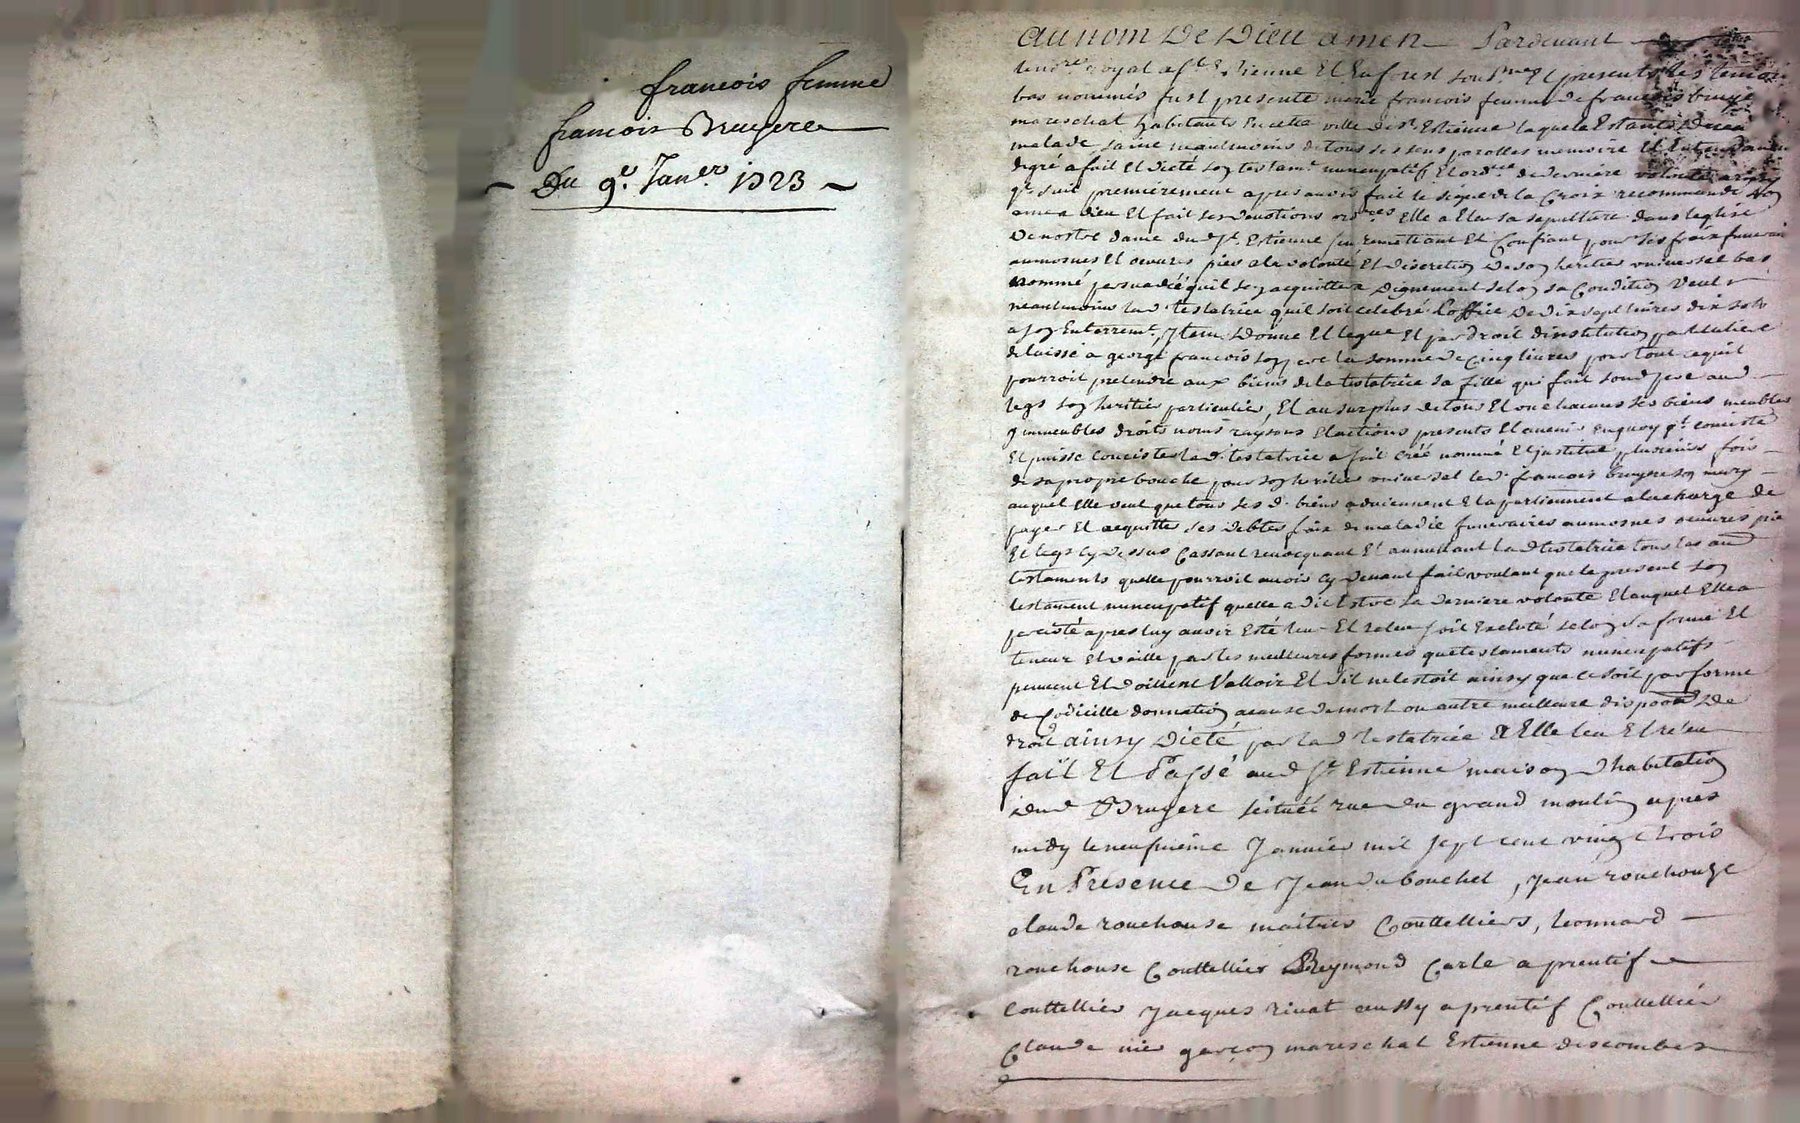 francois femme
francois Bruyere
Du 9e. Janer 1723
au nom De Dieu amen Pardevant
royal a St Estienne Et En forest Et presents les temoins
bas nommés fust presente marie francois femme de francois bruyere
mareschal habitants En cette ville de St Estienne laquelle Estants
malade saine neantmoins de tous ses sens parolles memoire Et Entendement
degré a fait Et dicté son testamt nuncupatif Et ordce de derniere volonté
qe suit premierement apres avoir fait le signe de la Croix recommandé son
ame a dieu Et fait ses devotions ordres Elle a Eleu sa sepulture dans leglise
De nostre dame dud St Estienne sen remettant Et Confiant pour ses fraix funerai
aumosnes Et oeuvres pies a la volonté Et discretion de son heritier universel bas
nommé persuadée quil sen acquittera Dignement selon sa Condition Veut
neantmoins lad testatrice quil soit celebré Loffice De dix sept livres dix sols
a son Enterremt, Item Donne Et legue Et par droit dinstitution particuliere
delaisse a george francois son pere la somme de Cinq livres pour tout ce quil
pourroit pretendre aux biens de la testatrice sa fille qui fait sond pere aud
legs son heritier particulier, Et au surplus de tous Et un chacuns ses biens meubles
immeubles droits noms raysons Et actions presents Et avenir En quoy qe conciste
Et puisse Concister lad. testatrice a fait créé nommé Et institué plusieurs fois
de sa propre bouche pour son heritier universel led. francois bruyere son mary
auquel Elle veut que tous ses d. biens adviennent Et apartiennent a la charge de
payer Et acquitter ses debtes fraix de maladie funeraires aumosnes oeuvres pie
Et legs Cy dessus Cassant revocquant Et annullant lad testatrice tous les au
testaments quelle pourroit avoir Cy devant fait voulant que le present son
testament nuncupatif quelle a dit Estre sa derniere volonté Et auquel Elle a
percisté apres luy avoir Esté leu Et releu soit Executé selon sa forme Et
teneur Et vaille par les meilleures formes que testaments nuncupatifs
peuvent Et doivent Valloir Et sil ne lestoit ainsy que ce soit par forme
de Codicille donnation a cause de mort ou autre meilleure dispoon De
droit ainsy Dicté par lad testatrice a Elle leu Et releu
fait Et Passé aud St Estienne maison dhabitation
dud Bruyere scituée rue du grand moulin apres
midy le neufvieme Janvier mil sept cent vingt trois
En Presence De Jean du bouchet, Jean rouchouze
claude rouchouse maitres Couttelliers, leonnard
rouchouse Couttellier Reymond Carle aprentif
Couttellier Jacques rivat aussy aprentif Couttellier
Claude garçon mareschal Estienne descombes